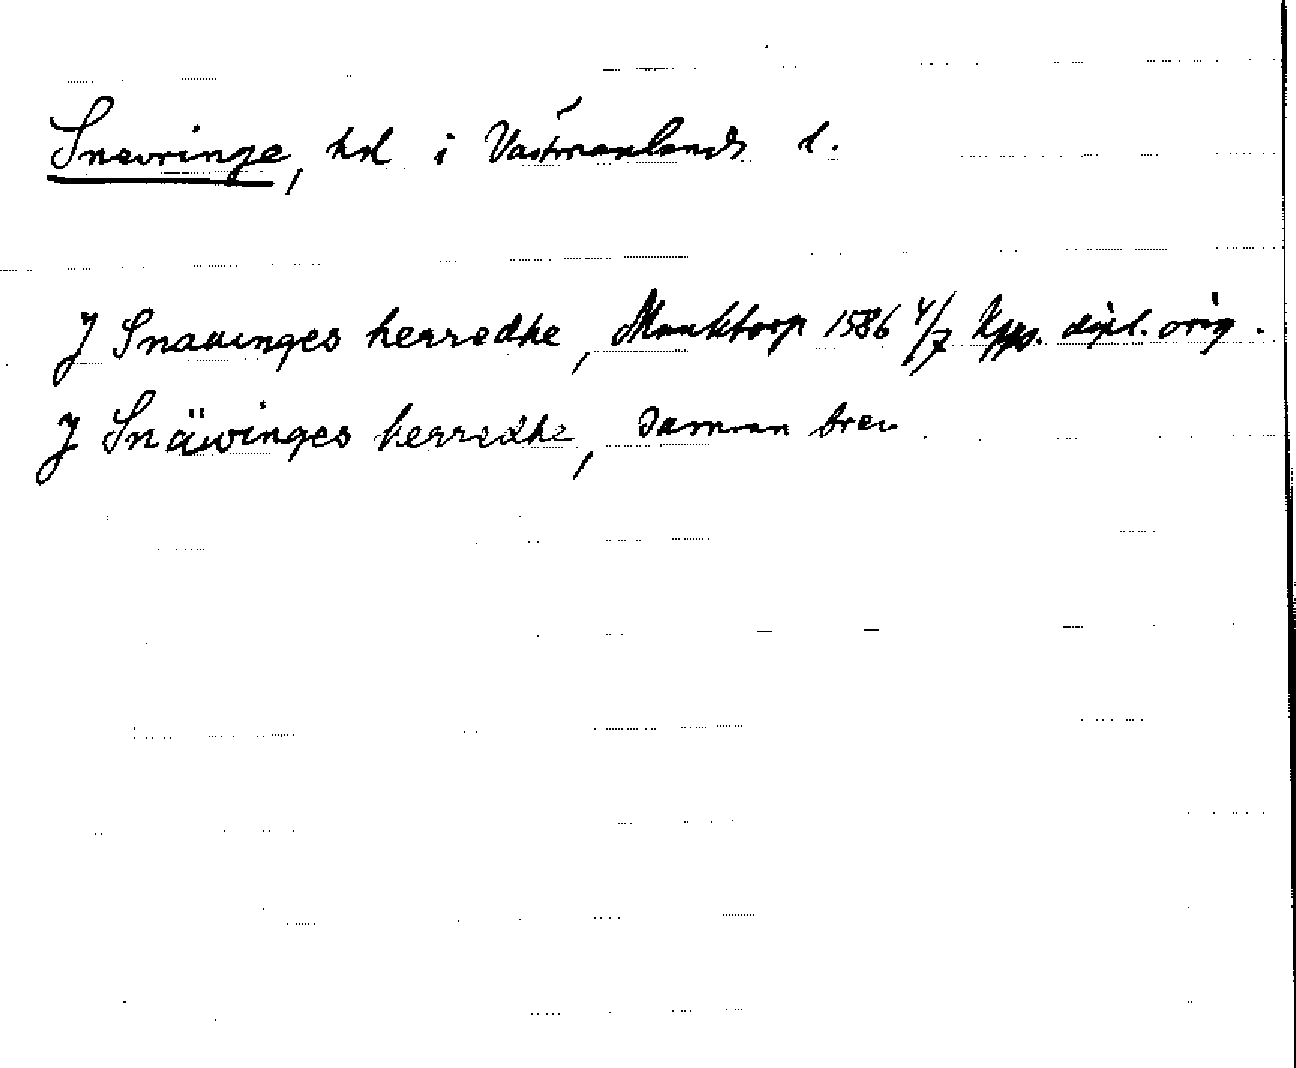 Snevringe, hd i Västmanlands l.
J Snauinges herredhe, Munktorp 1586 4/7 Upps. dipl. orig.
J Snäwinges herredhe, samma brev.